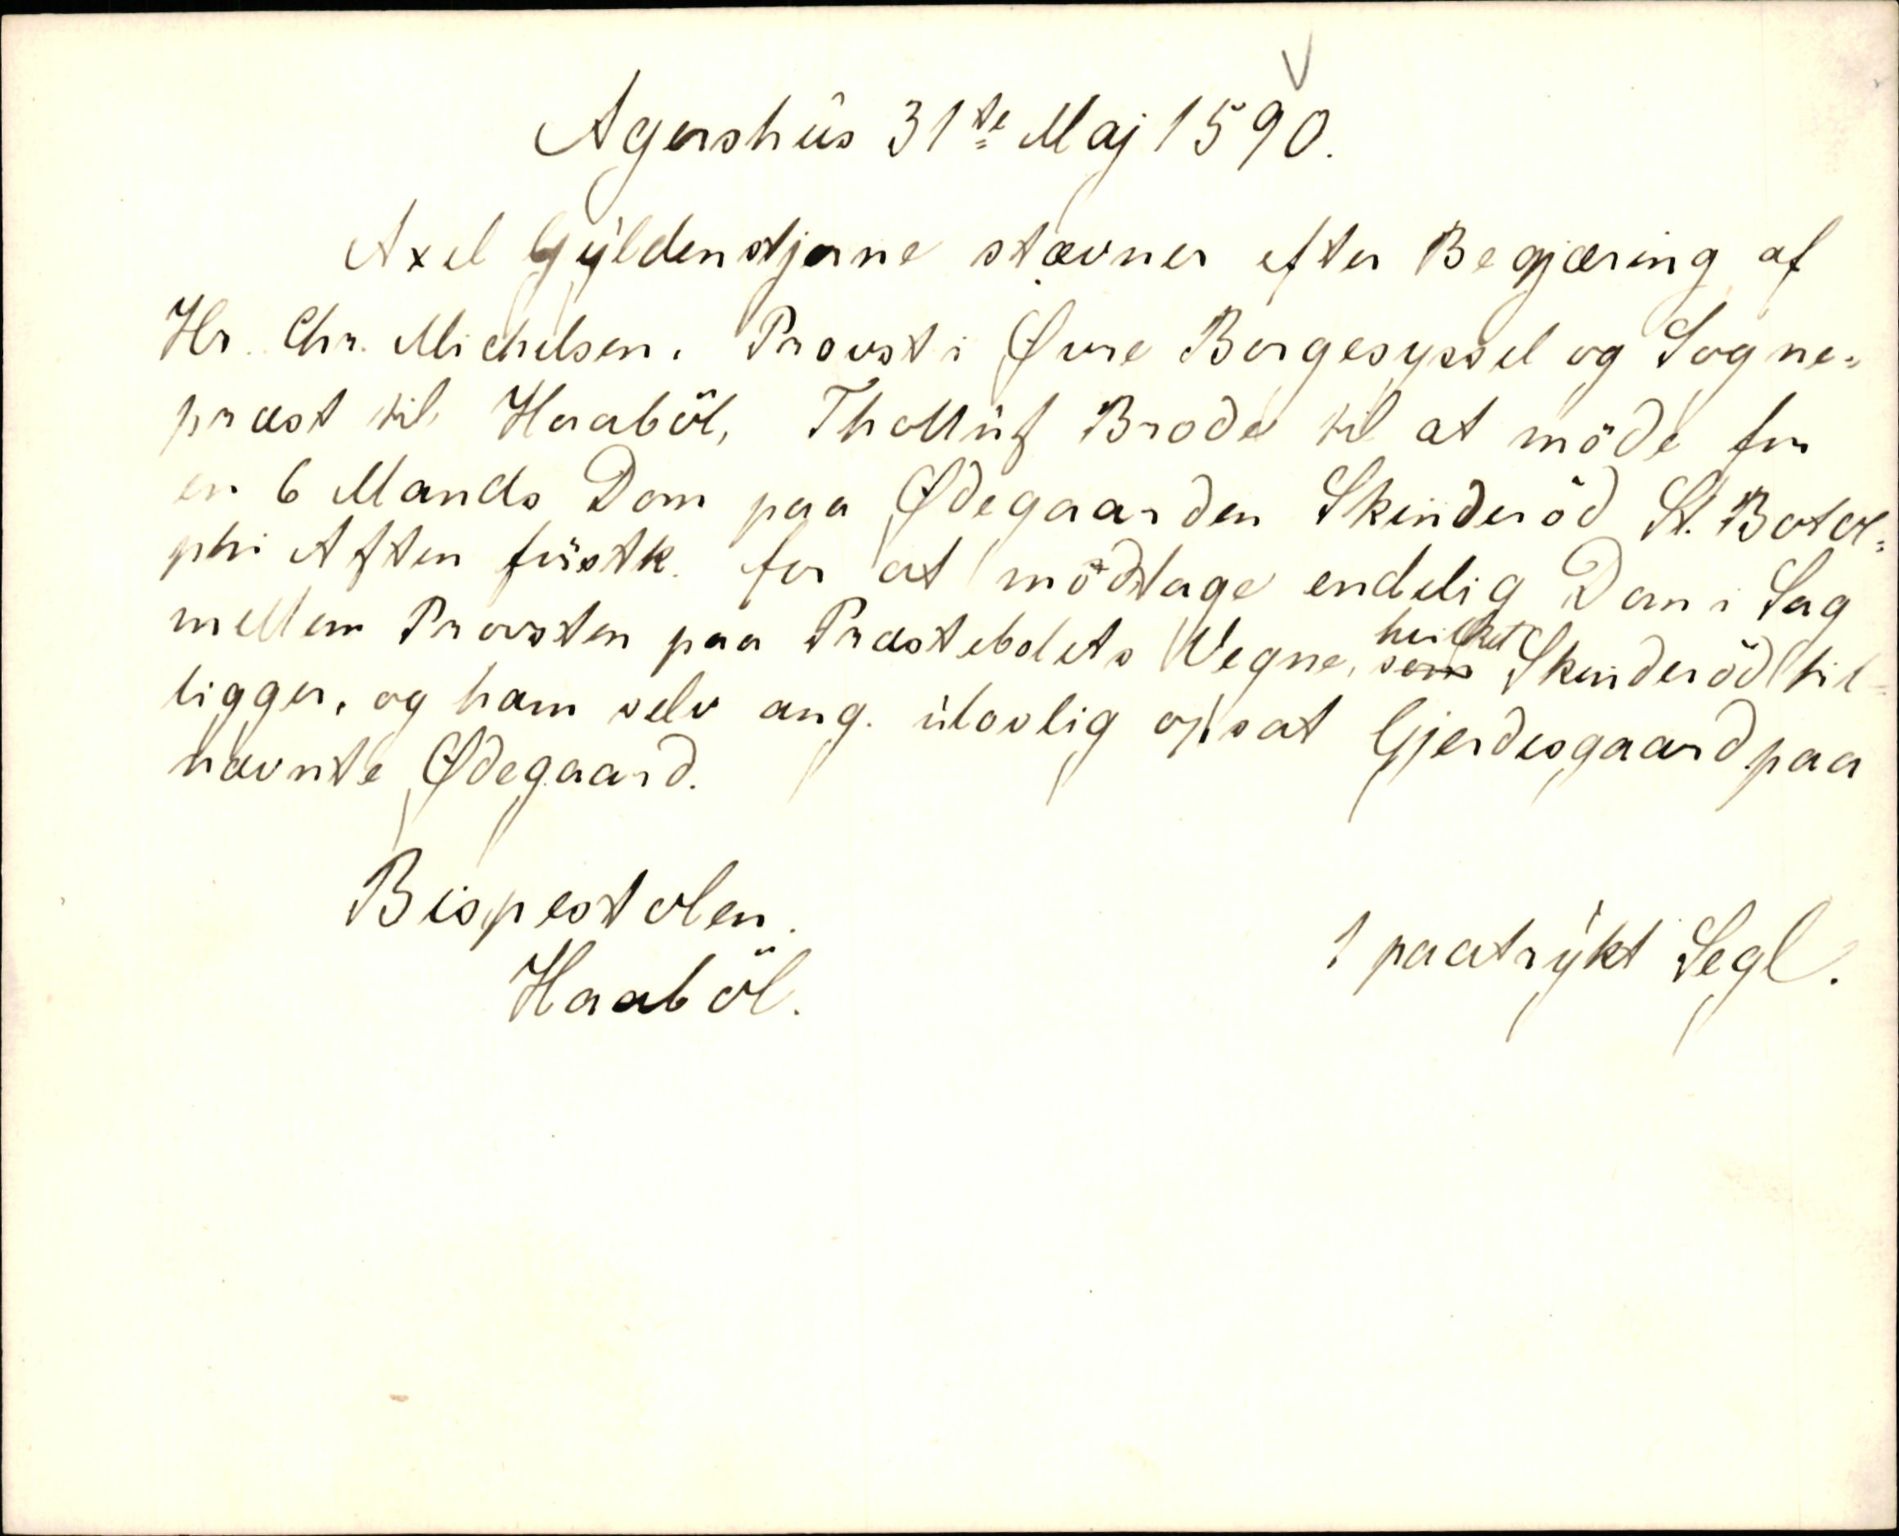 Agershus 31te Maj 1590.
Axel Gyldenstjerne stævner efter Begjæring af
Hr. Chr. Michelsen, Provst i Øvre Borgesyssel og Sogne=
præst til Haaböl, Tholluf Brode til at möde for
en 6 Mands Dom paa Ødegaarden Skinderöd St. Botol=
phi Aften förstk. for at modtage endelig Dom i Sag
mellem Provsten paa Præstebolets Vegne, hvilket Skinderöd til=
ligger, og ham selv ang. ulovlig opsat Gjerdesgaard paa
nævnte Ødegaard.
Bispestolen.
Haaböl.
1 paatrykt Segl.